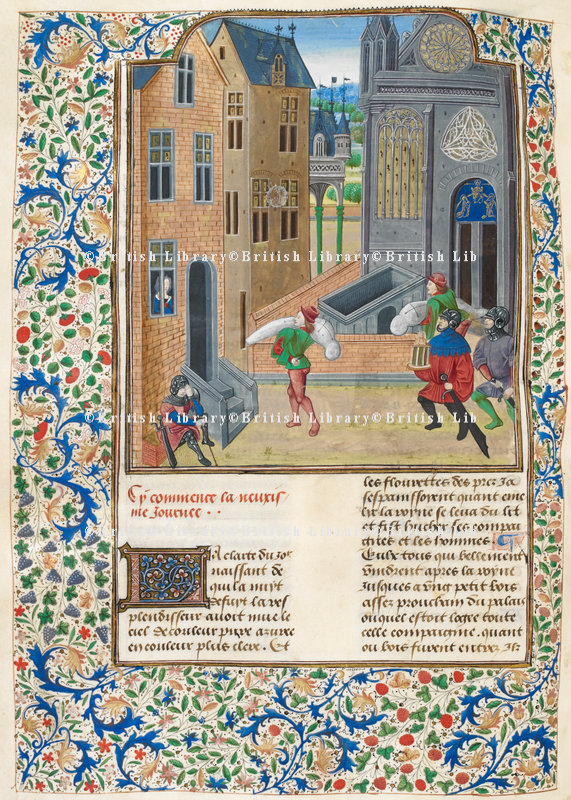 ©British Library©British Library©British Lib
©British Library©British Library©British Lib
©British Library©British Library©British Lib
Cy commence la
me Journee . .
La clarte du Jor
naissant de
qui la nuyt
refuyt la res
plendisseur auoit mue le
ciel de couleur azuree
en couleur plus clere. Et
les flourettes des prez Ja
quant eme
lye la royne se leua du lit
et fist hucher ses compai
gnes et les hommes.
Eulx tous qui bellement
vindrent apres la royne
Jusques a vng petit bois
assez prouchain du palais
ouquel estoit logee toute
celle compaignie. quant
ou bois furent entrez Ilz